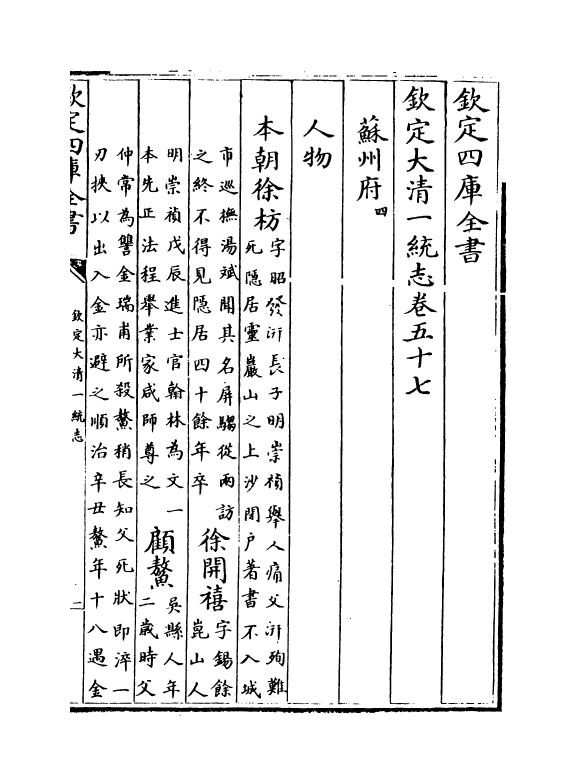 欽定四庫全書
欽定大清一統志卷五十七
蘇州府四
人物
本朝徐枋字昭發汧長子明崇禎舉人痛父汧殉難
死隱居靈巖山之上沙閉户著書不入城
市巡撫湯斌聞其名屏騶從兩訪
之終不得見隱居四十餘年卒
徐開禧字錫餘
崑山人
明崇禎戊辰進士官翰林為文一
本先正法程舉業家咸師尊之
顧鰲吳縣人年
二歲時父
仲常為讐金瑞甫所殺鰲稍長知父死狀即淬一
刃挾以出入金亦避之順治辛丑鰲年十八遇金
欽定四庫全書
欽定大清一統志
二